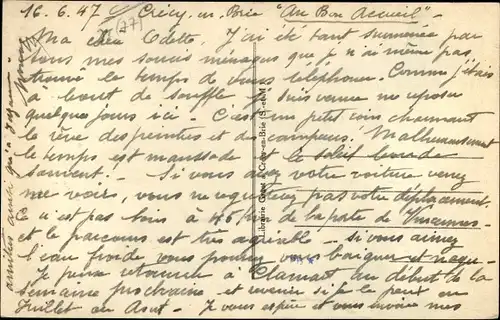 16.6.47 Crécy en Brie "Au Bon Accueil" -
(27)
Ma chère Odette, J'ai été tant surmenée par
tous mes soucis ménagers que je n'ai même pas
trouvé le temps de vous téléphoner. Comme j'étais
à bout de souffle je suis venue me reposer
quelques jours ici - C'est un petit coin charmant
le rêve des peintres et des campeurs. Malheureusement
le temps est maussade et le soleil boude
souvent. - Si vous avez votre voiture venez
me voir, vous ne regretterez pas votre déplacement.
Ce n'est pas loin à 45 km de la porte de Vincennes
et le parcours est très agréable - si vous aimez
l'eau froide vous pouvez vous baigner et nager.
Je pense retourner à Clamart au début de la
semaine prochaine et revenir si je le peux en
Juillet ou Aout - Je vous espère et vous envoie mes
amitiés ainsi qu'à
Librairie Crécy-en-Brie (S.-et-M.)